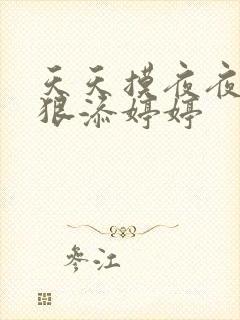 天天摸夜夜
狠添婷婷
參江